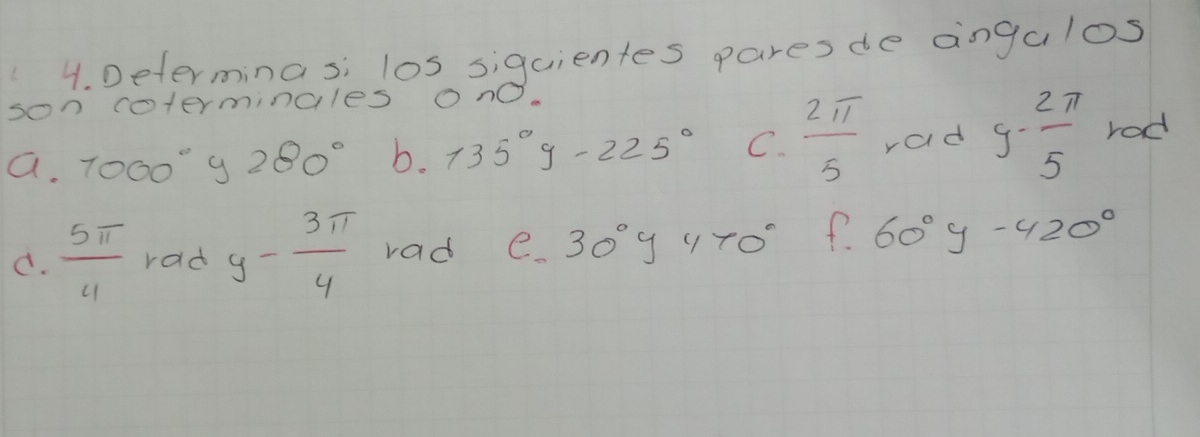 4. Determina si los siguientes pares de ángulos
son coterminales o no.
a. 1000° y 280° b. 135° y -225° c. 2π/5 rad y -2π/5 rad
d. 5π/4 rad y -3π/4 rad e. 30° y 470° f. 60° y -420°